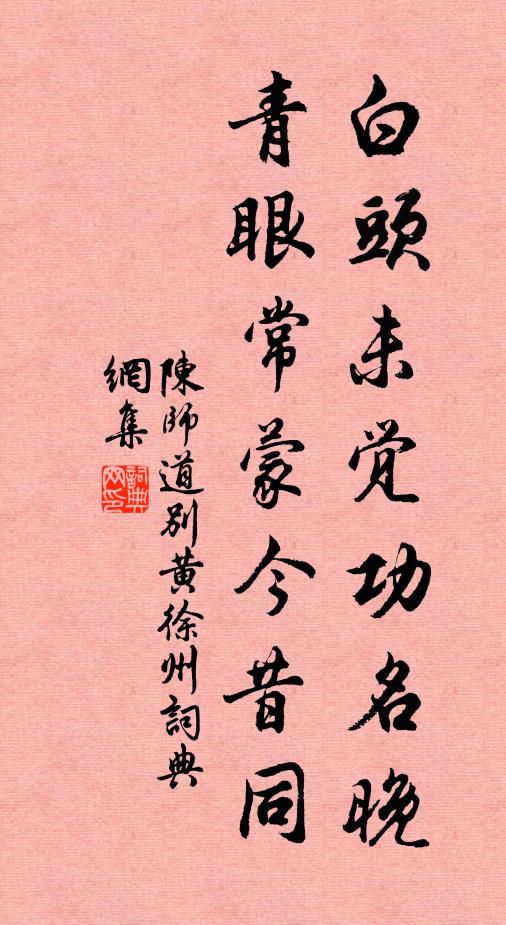 白頭未觉功名晚
青眼常蒙今昔同
陳師道別黄徐州詞典
網集
詞典
网印